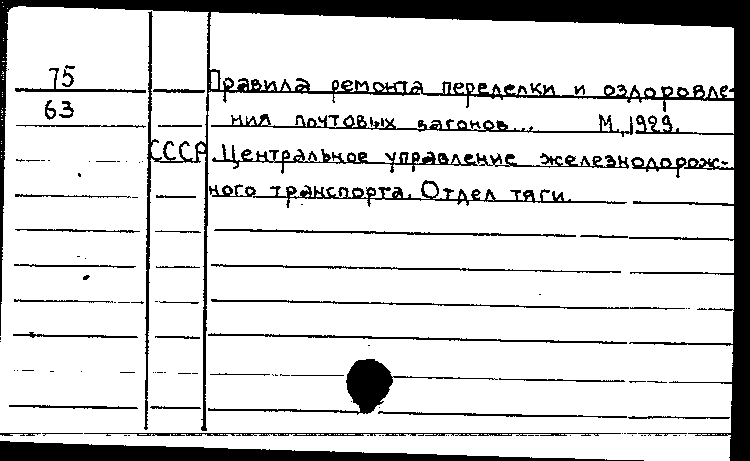 75 Правила ремонта переделки и оздоровле-
63 ния почтовых вагонов... М., 1929.
СССР. Центральное управление железнодорож-
ного транспорта. Отдел тяги.